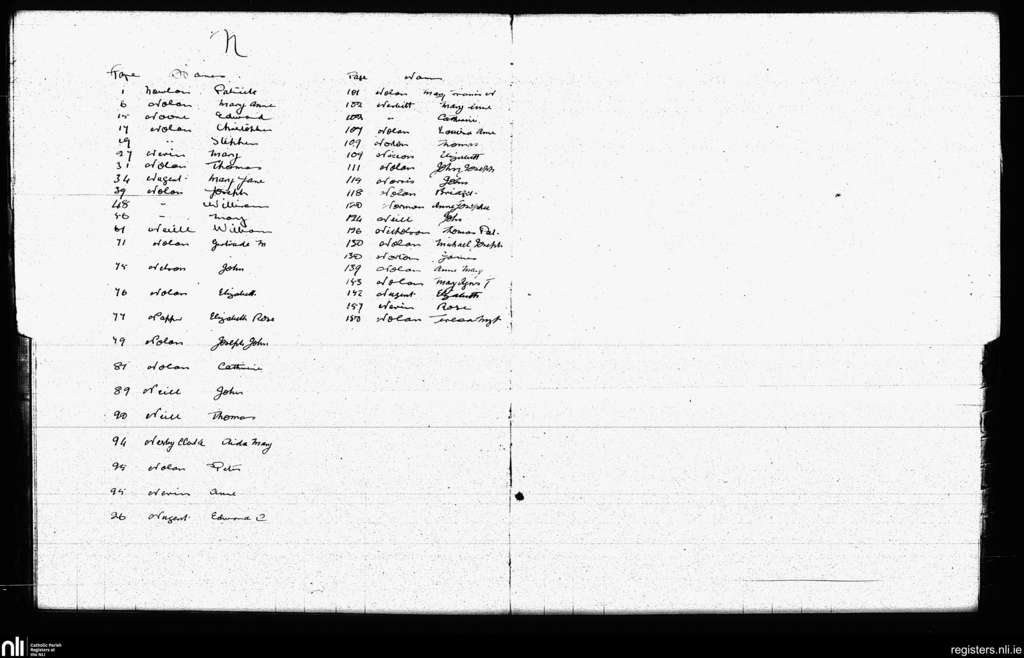 N
Page Names
1 Nowlan Patrick
6 Nolan Mary Anne
15 Noone Edward
17 Nolan Christopher
19 " Stephen
27 Nevin Mary
31 Nolan Thomas
34 Nugent Mary Jane
39 Nolan Joseph
48 " William
56 " Mary
61 Neill William
71 Nolan Gertrude M
75 Nelson John
76 Nolan Elizabeth
77 Napper Elizabeth Rose
79 Nolan Joseph John
87 Nolan Catherine
89 Neill John
90 Neill Thomas
94 Nerby Clark Aida May
95 Nolan Peter
95 Nevin Anne
26 Nugent Edward C
Page Names
101 Nolan Mary
102 Nesbitt Mary Anne
102 " Catherine
107 Nolan Louisa Anne
109 Nolan Thomas
109 Elizabeth
111 Nolan John Joseph
119 Norris John
118 Nolan Bridget
120 Norman Anne Josephine
124 Neill John
126 Nicholson Thomas Pat.
130 Nolan Michael Joseph
130 Nolan James
139 Nolan Anne Mary
143 Nolan May Agnes T
142 Nugent Elizabeth
157 Nevin Rose
158 Nolan Teresa Mgt
nli Catholic Parish
Registers at
the NLI
registers.nli.ie